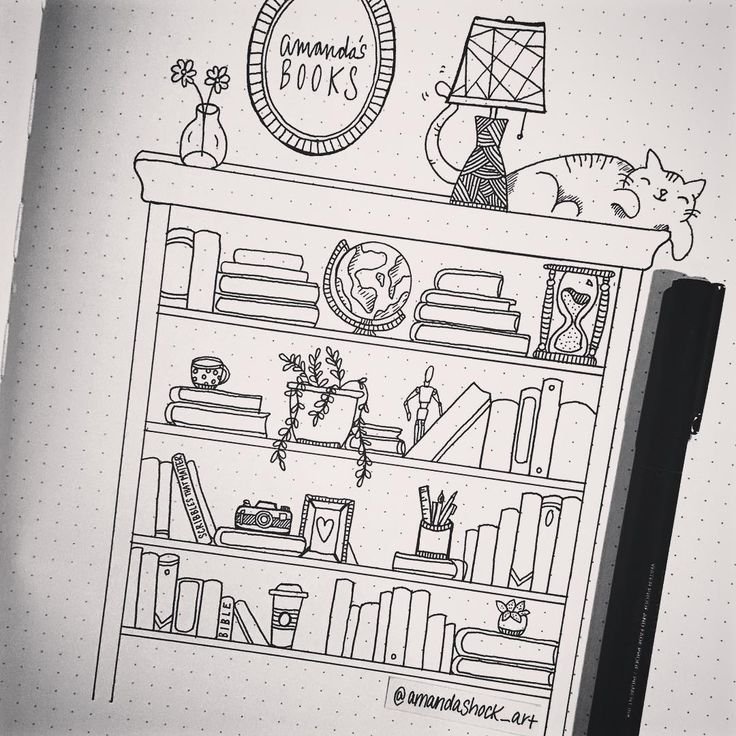 amanda's
BOOKS
SCRIBBLES THAT MATTER
BIBLE
@amandashock_art